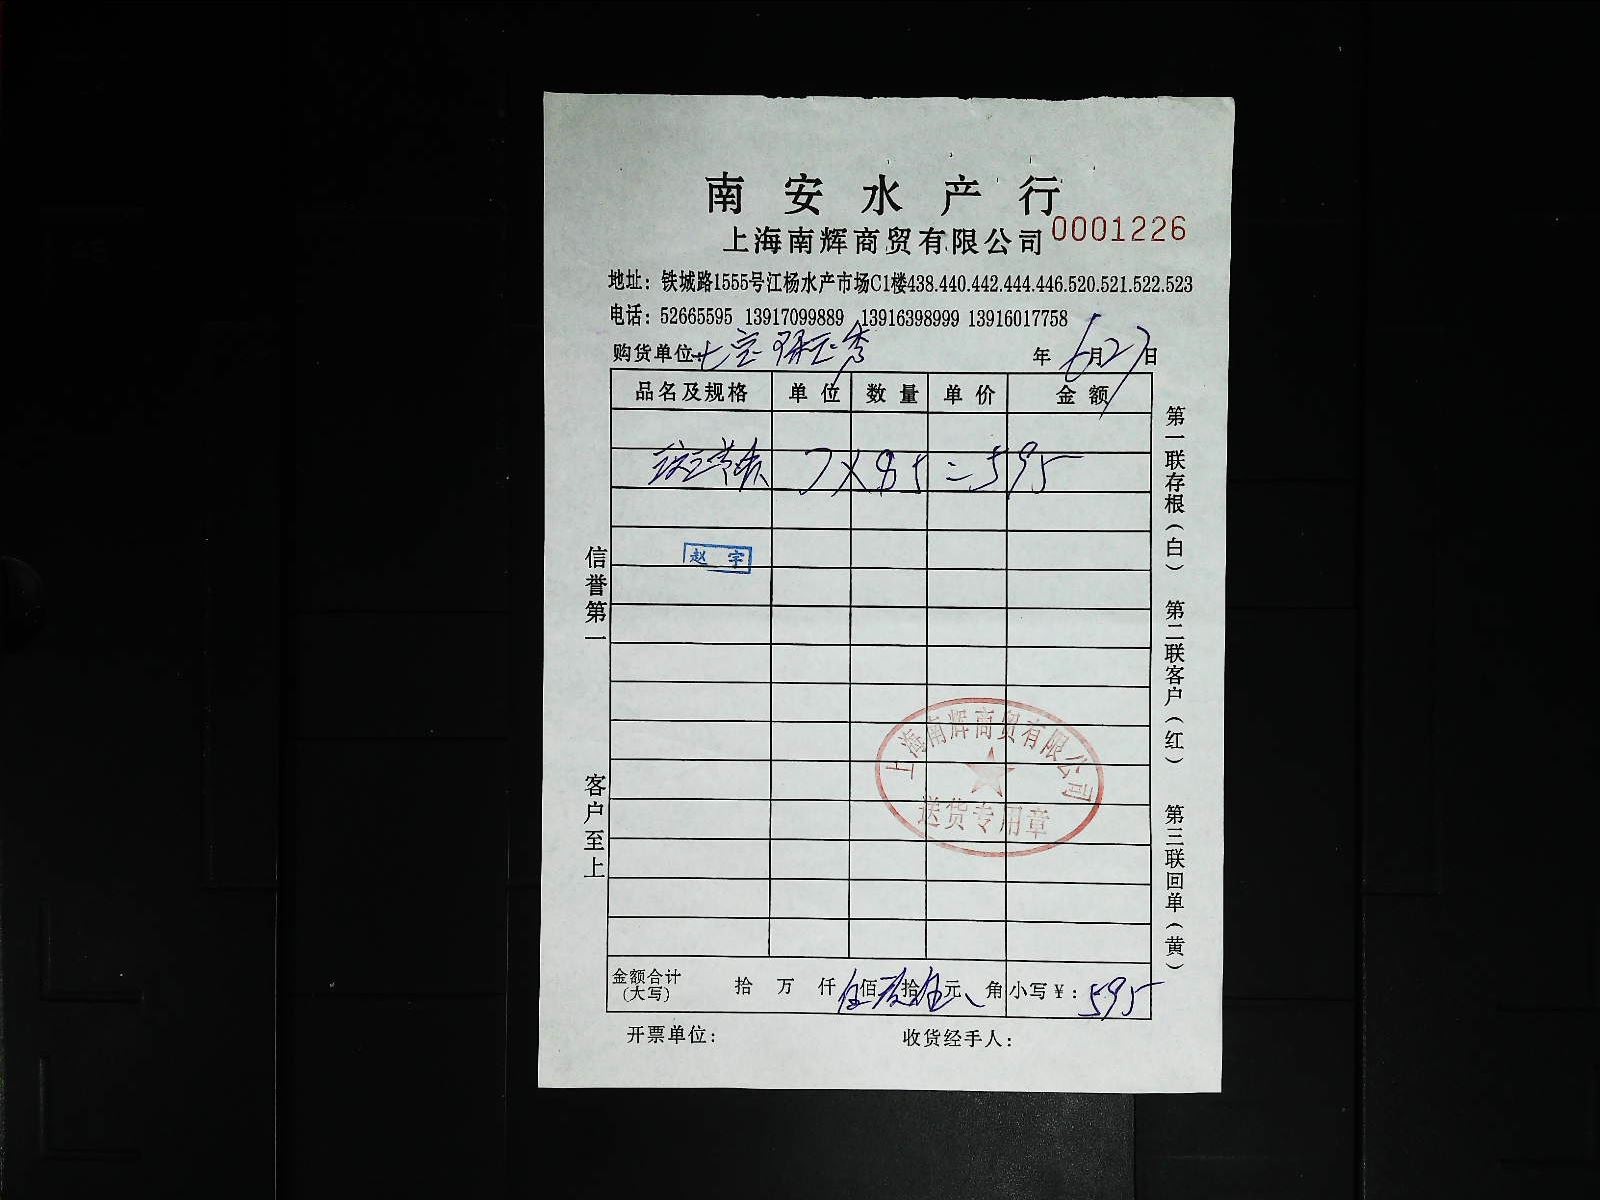 南安水产行
上海南辉商贸有限公司 0001226
地址：铁城路1555号江杨水产市场C1楼438.440.442.444.446.520.521.522.523
电话：52665595 13917099889 13916398999 13916017758
购货单位：七宝 年6月27日
品名及规格 单位 数量 单价 金额
7×85=595
赵宇
上海南辉商贸有限公司
送货专用章
金额合计（大写） 拾 万 仟 伍佰玖拾伍元 角 小写￥：595
开票单位： 收货经手人：
信誉第一 客户至上
第一联存根（白） 第二联客户（红） 第三联回单（黄）